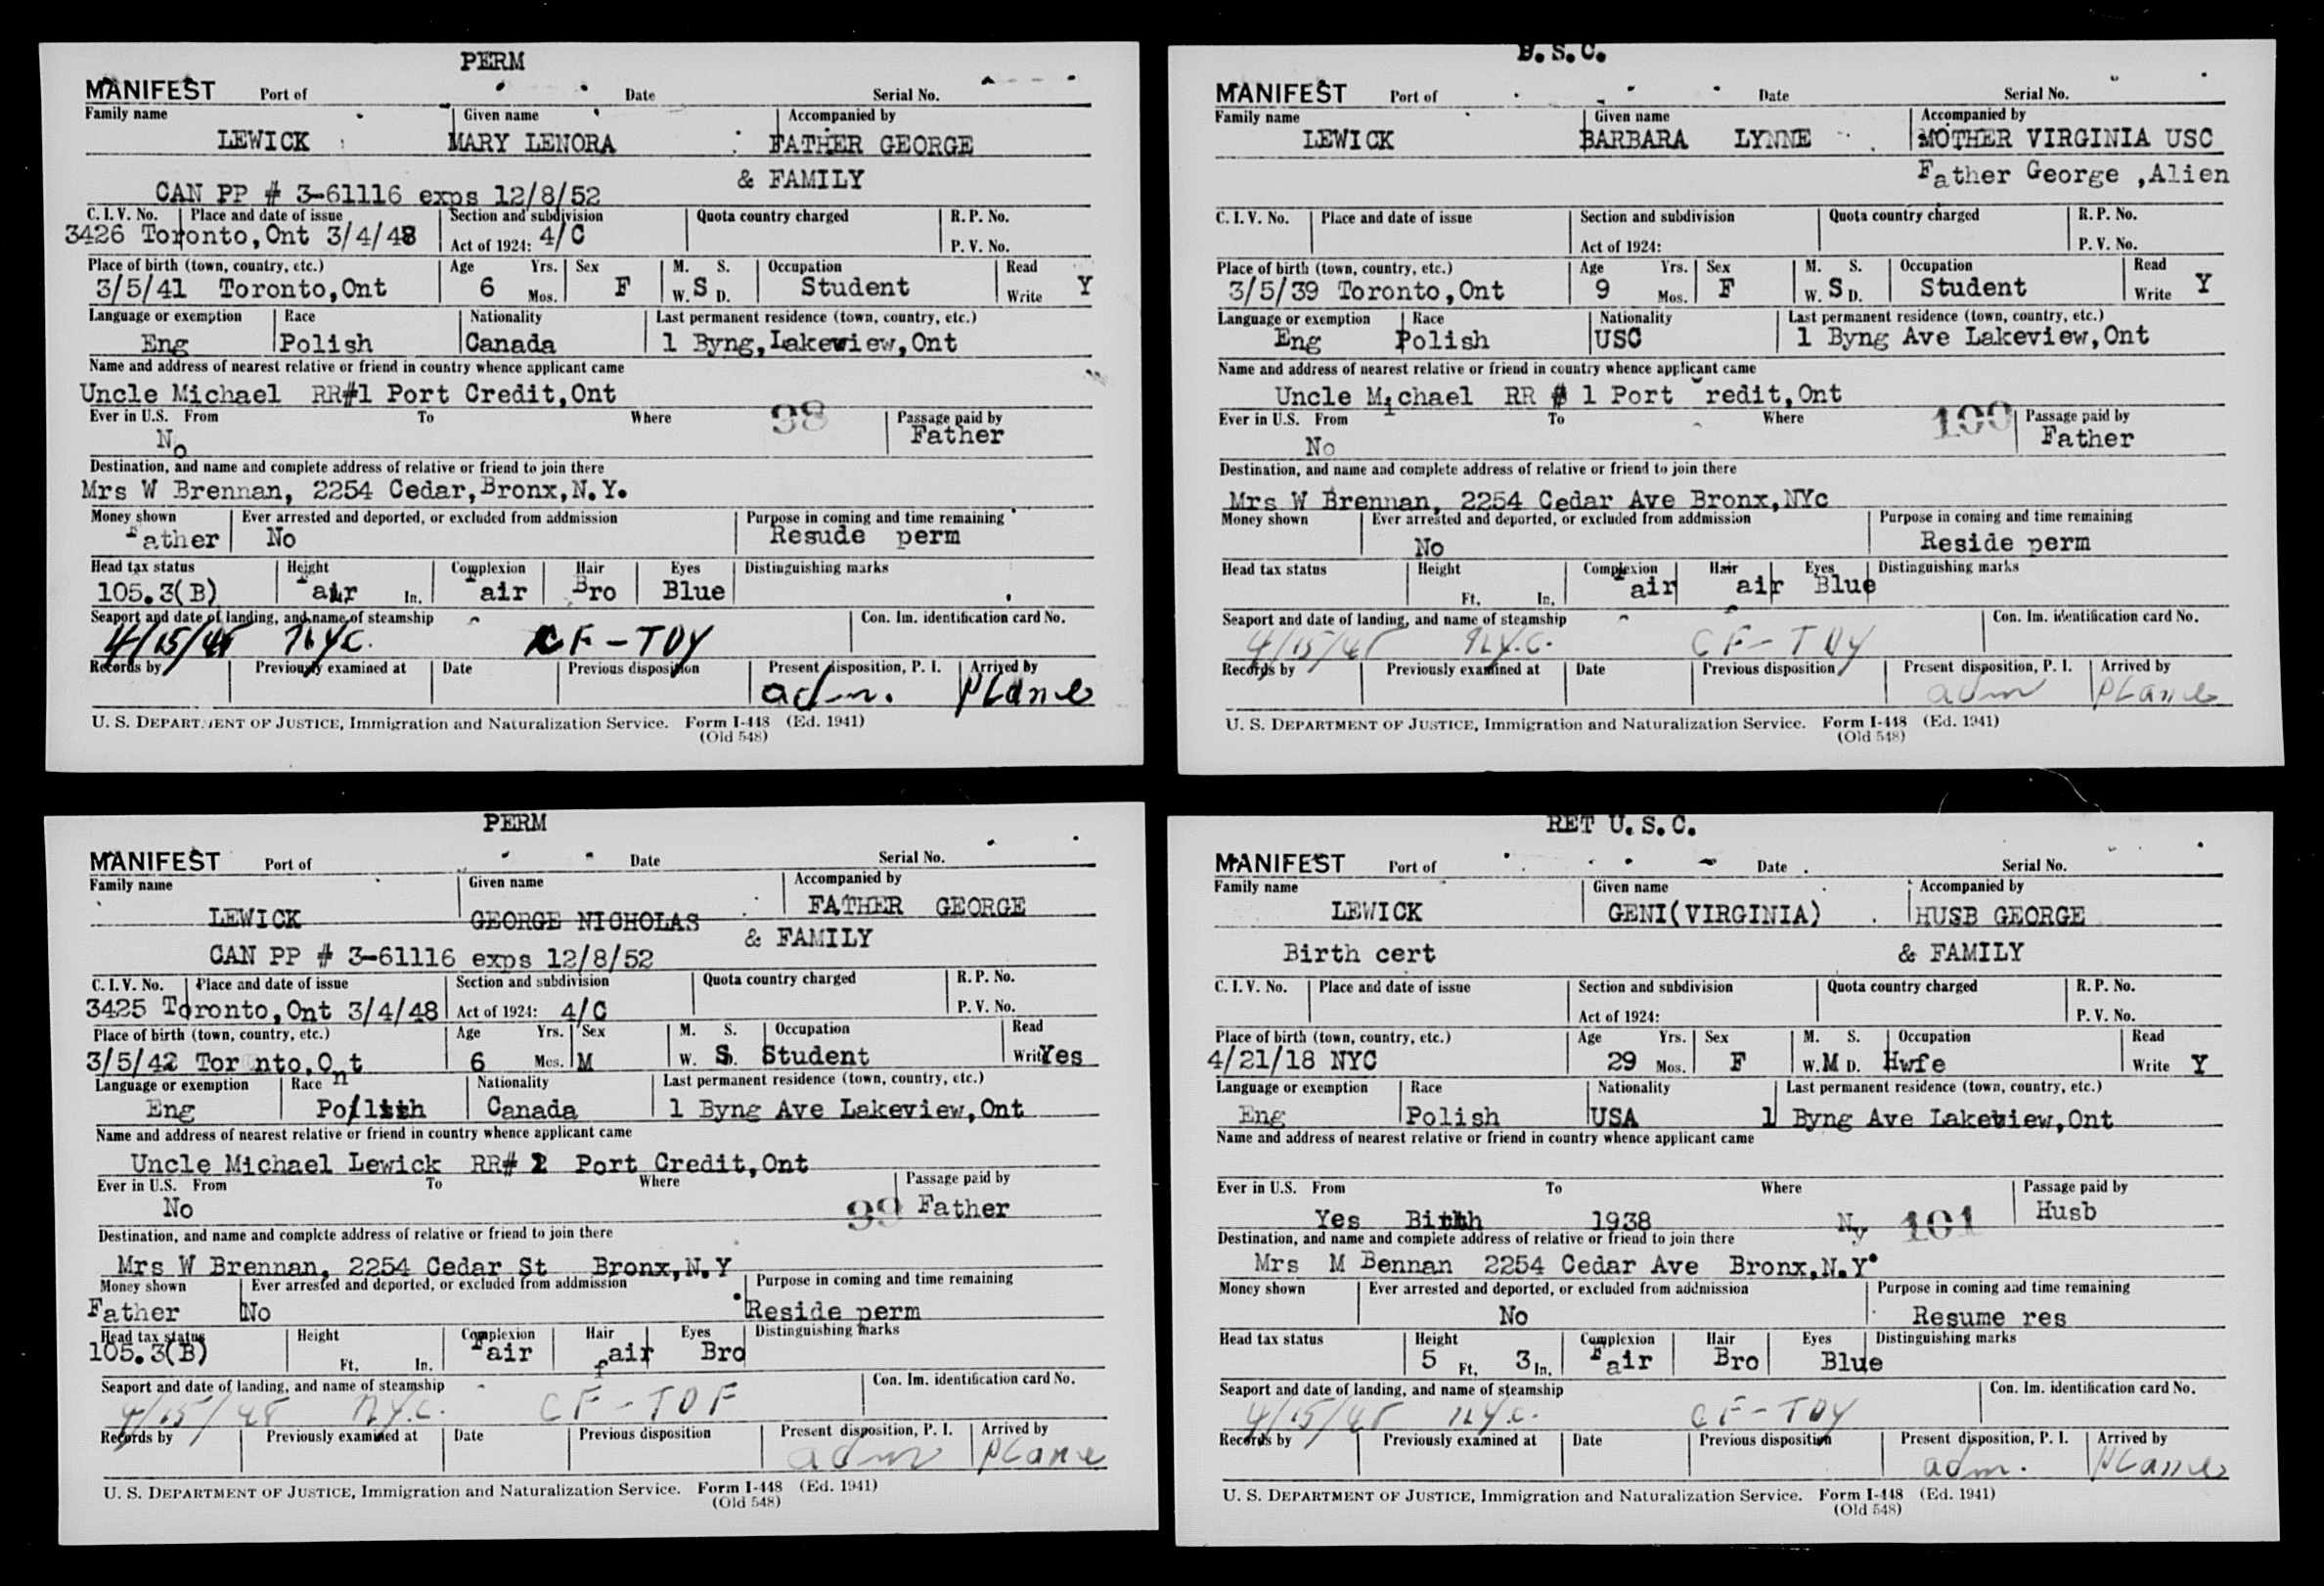 PERM
MANIFEST Port of Date Serial No.
Family name Given name Accompanied by
LEWICK MARY LENORA FATHER GEORGE
CAN PP # 3-61116 exps 12/8/52 & FAMILY
C. I. V. No. Place and date of issue Section and subdivision Quota country charged R. P. No.
3426 Toronto,Ont 3/4/48 Act of 1924: 4/C P. V. No.
Place of birth (town, country, etc.) Age Yrs. Sex M. S. Occupation Read
3/5/41 Toronto,Ont 6 Mos. F W. S D. Student Write Y
Language or exemption Race Nationality Last permanent residence (town, country, etc.)
Eng Polish Canada 1 Byng,Lakeview,Ont
Name and address of nearest relative or friend in country whence applicant came
Uncle Michael RR#1 Port Credit,Ont
Ever in U.S. From To Where 98 Passage paid by
No Father
Destination, and name and complete address of relative or friend to join there
Mrs W Brennan, 2254 Cedar,Bronx,N.Y.
Money shown Ever arrested and deported, or excluded from addmission Purpose in coming and time remaining
Father No Resude perm
Head tax status Height Complexion Hair Eyes Distinguishing marks
105.3(B) In. Fair Bro Blue
Seaport and date of landing, and name of steamship Con. Im. identification card No.
4/15/48 N.Y.C. CF-TOY
Records by Previously examined at Date Previous disposition Present disposition, P. I. Arrived by
adm. Plane
U. S. DEPARTMENT OF JUSTICE, Immigration and Naturalization Service. Form I-448 (Ed. 1941)
(Old 548)
U.S.C.
MANIFEST Port of Date Serial No.
Family name Given name Accompanied by
LEWICK BARBARA LYNNE MOTHER VIRGINIA USC
Father George ,Alien
C. I. V. No. Place and date of issue Section and subdivision Quota country charged R. P. No.
Act of 1924: P. V. No.
Place of birth (town, country, etc.) Age Yrs. Sex M. S. Occupation Read
3/5/39 Toronto,Ont 9 Mos. F W. S D. Student Write Y
Language or exemption Race Nationality Last permanent residence (town, country, etc.)
Eng Polish USC 1 Byng Ave Lakeview,Ont
Name and address of nearest relative or friend in country whence applicant came
Uncle Michael RR # 1 Port Credit,Ont
Ever in U.S. From To Where 100 Passage paid by
No Father
Destination, and name and complete address of relative or friend to join there
Mrs W Brennan, 2254 Cedar Ave Bronx,NYc
Money shown Ever arrested and deported, or excluded from addmission Purpose in coming and time remaining
No Reside perm
Head tax status Height Complexion Hair Eyes Distinguishing marks
Ft. In. Fair Fair Blue
Seaport and date of landing, and name of steamship Con. Im. identification card No.
4/15/48 N.Y.C. CF-TOY
Records by Previously examined at Date Previous disposition Present disposition, P. I. Arrived by
adm Plane
U. S. DEPARTMENT OF JUSTICE, Immigration and Naturalization Service. Form I-448 (Ed. 1941)
(Old 548)
PERM
MANIFEST Port of Date Serial No.
Family name Given name Accompanied by
LEWICK GEORGE NICHOLAS FATHER GEORGE
CAN PP # 3-61116 exps 12/8/52 & FAMILY
C. I. V. No. Place and date of issue Section and subdivision Quota country charged R. P. No.
3425 Toronto,Ont 3/4/48 Act of 1924: 4/C P. V. No.
Place of birth (town, country, etc.) Age Yrs. Sex M. S. Occupation Read
3/5/42 Toronto,Ont 6 Mos. M W. S D. Student Write Yes
Language or exemption Race Nationality Last permanent residence (town, country, etc.)
Eng Polish Canada 1 Byng Ave Lakeview,Ont
Name and address of nearest relative or friend in country whence applicant came
Uncle Michael Lewick RR# 1 Port Credit,Ont
Ever in U.S. From To Where Passage paid by
No 99 Father
Destination, and name and complete address of relative or friend to join there
Mrs W Brennan, 2254 Cedar St Bronx,N.Y
Money shown Ever arrested and deported, or excluded from addmission Purpose in coming and time remaining
Father No Reside perm
Head tax status Height Complexion Hair Eyes Distinguishing marks
105.3(B) Ft. In. Fair fair Bro
Seaport and date of landing, and name of steamship Con. Im. identification card No.
4/15/48 N.Y.C. CF-TOF
Records by Previously examined at Date Previous disposition Present disposition, P. I. Arrived by
adm Plane
U. S. DEPARTMENT OF JUSTICE, Immigration and Naturalization Service. Form I-448 (Ed. 1941)
(Old 548)
RET U.S.C.
MANIFEST Port of Date Serial No.
Family name Given name Accompanied by
LEWICK GENI(VIRGINIA) HUSB GEORGE
Birth cert & FAMILY
C. I. V. No. Place and date of issue Section and subdivision Quota country charged R. P. No.
Act of 1924: P. V. No.
Place of birth (town, country, etc.) Age Yrs. Sex M. S. Occupation Read
4/21/18 NYC 29 Mos. F W. M D. Hwfe Write Y
Language or exemption Race Nationality Last permanent residence (town, country, etc.)
Eng Polish USA 1 Byng Ave Lakeview,Ont
Name and address of nearest relative or friend in country whence applicant came
Ever in U.S. From To Where Passage paid by
Yes Birth 1938 Ny 101 Husb
Destination, and name and complete address of relative or friend to join there
Mrs M Bennan 2254 Cedar Ave Bronx,N.Y.
Money shown Ever arrested and deported, or excluded from addmission Purpose in coming and time remaining
No Resume res
Head tax status Height Complexion Hair Eyes Distinguishing marks
5 Ft. 3 In. Fair Bro Blue
Seaport and date of landing, and name of steamship Con. Im. identification card No.
4/15/48 N.Y.C. CF-TOY
Records by Previously examined at Date Previous disposition Present disposition, P. I. Arrived by
adm. Plane
U. S. DEPARTMENT OF JUSTICE, Immigration and Naturalization Service. Form I-448 (Ed. 1941)
(Old 548)